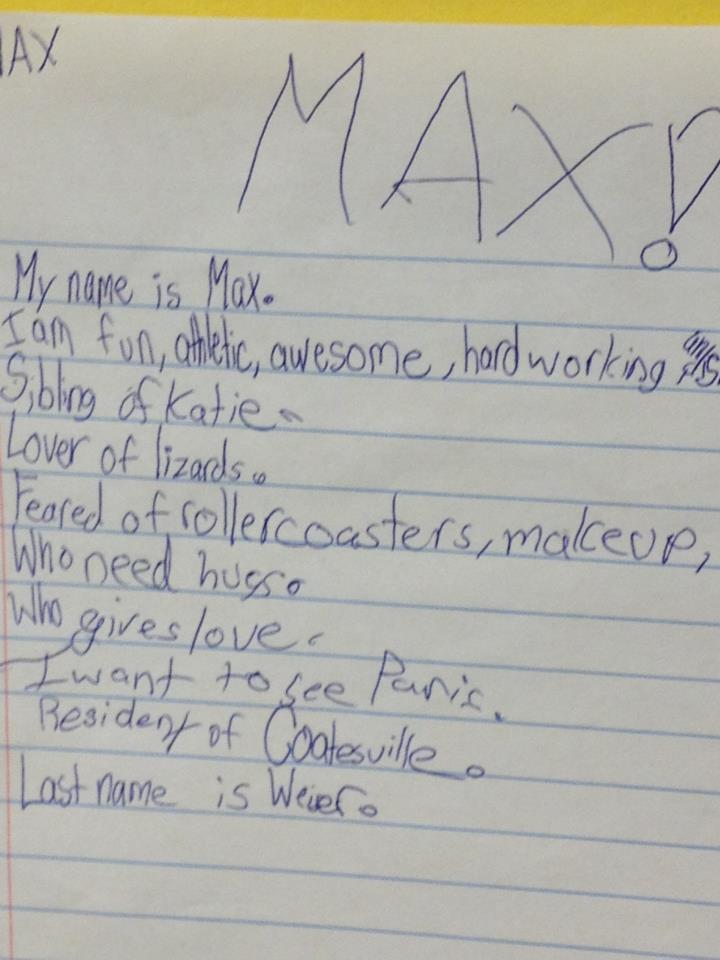 MAX
MAX!
My name is Max.
I am fun, athletic, awesome, hardworking
Sibling of Katie.
Lover of lizards.
Feared of rollercoasters, makeup,
Who need hugs.
Who gives love.
I want to see Paris.
Resident of Coatesville.
Last name is Weier.